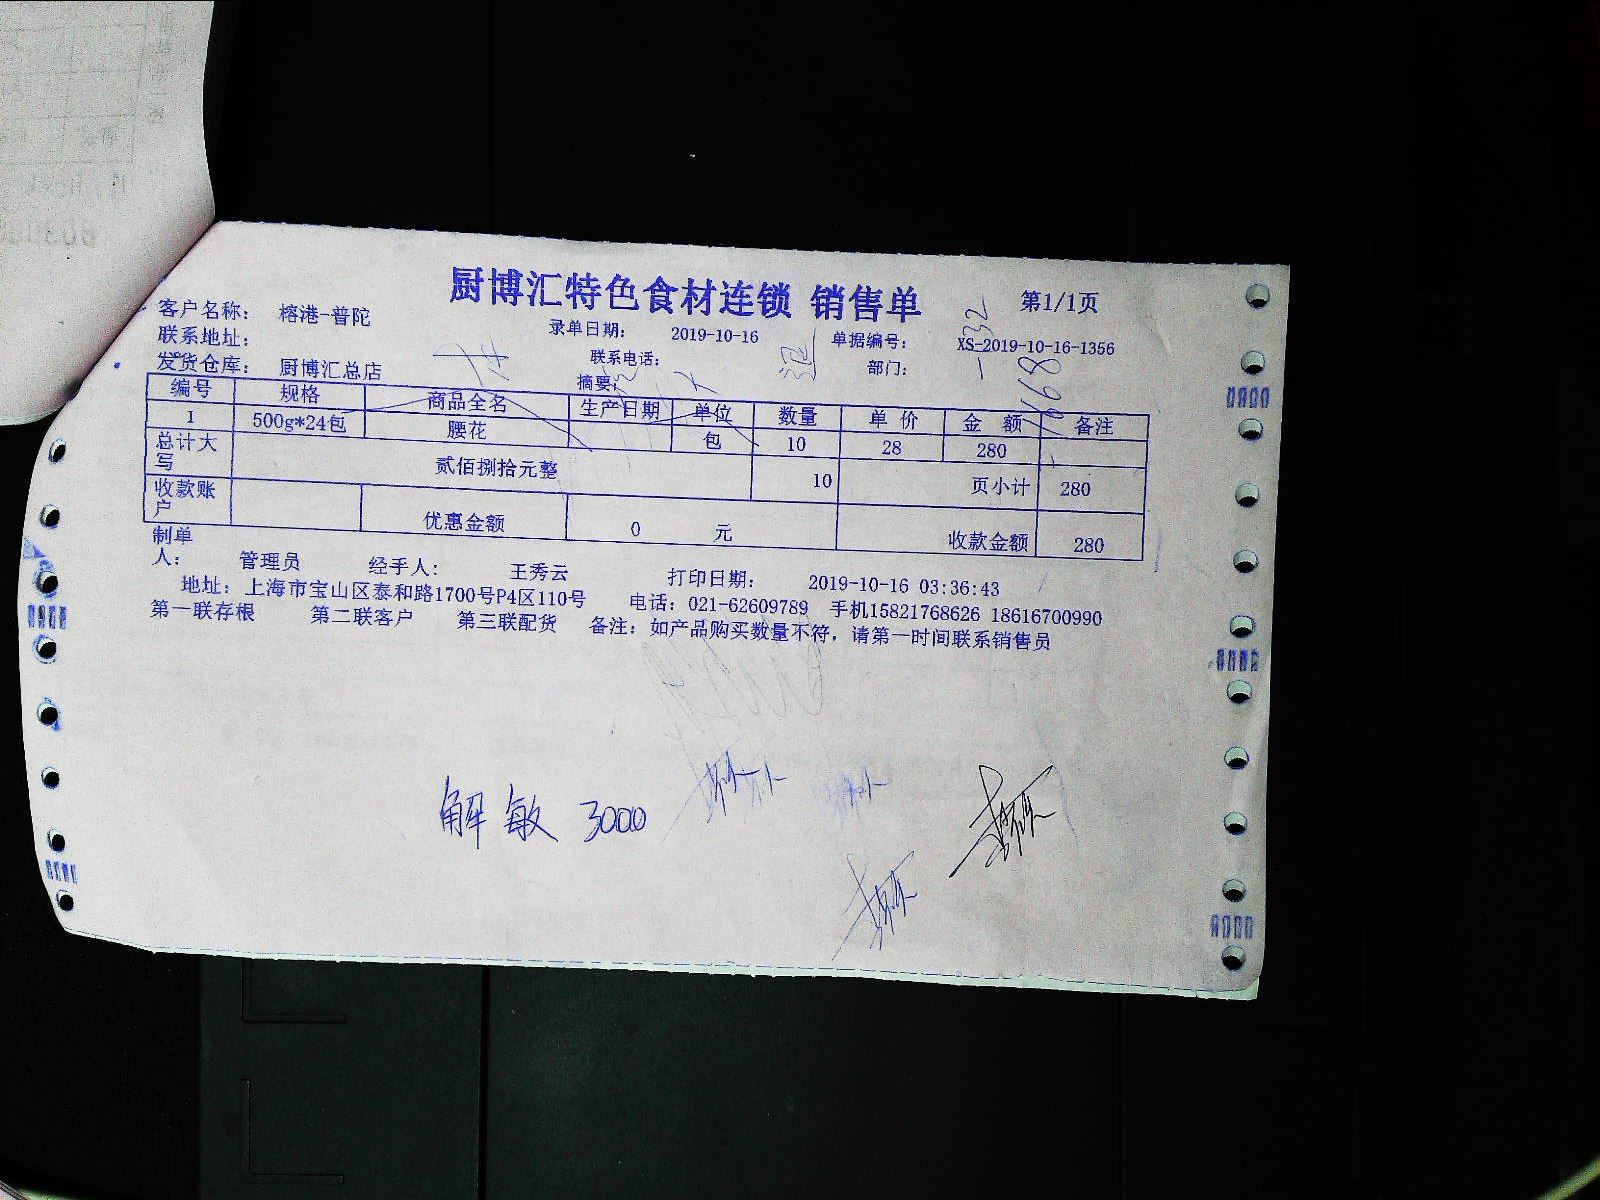 厨博汇特色食材连锁 销售单
第1/1页
客户名称： 榕港-普陀
录单日期： 2019-10-16 单据编号： XS-2019-10-16-1356
联系地址：
联系电话： 部门：
发货仓库： 厨博汇总店 摘要：
编号 规格 商品全名 生产日期 单位 数量 单价 金额 备注
1 500g*24包 腰花 包 10 28 280
总计大写 贰佰捌拾元整 10 页小计 280
收款账户 优惠金额 0 元 收款金额 280
制单人： 管理员 经手人： 王秀云 打印日期： 2019-10-16 03:36:43
地址：上海市宝山区泰和路1700号P4区110号 电话：021-62609789 手机15821768626 18616700990
第一联存根 第二联客户 第三联配货 备注：如产品购买数量不符，请第一时间联系销售员
解敏 3000